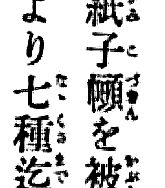 紙子を被
より七種迄